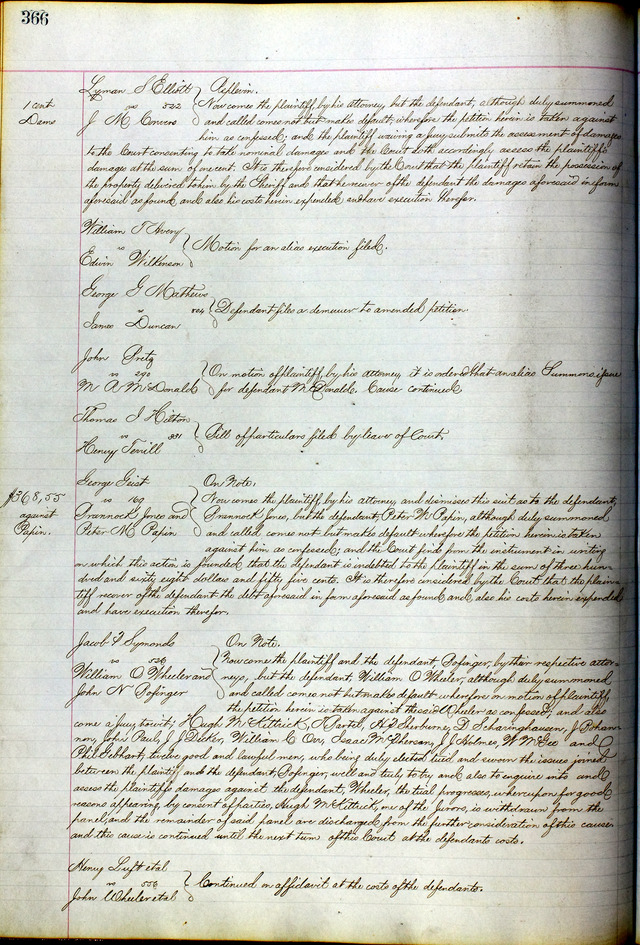 366
Lyman S Elliott } Replevin.
1 cent
Dams
vs 522 Now comes the plaintiff, by his attorney, but the defendant, although duly summoned
J M Convers and called comes not but makes default; wherefore the petition herein is taken against
him as confessed; and the plaintiff waiving a jury submits the assessment of damages
to the Court consenting to take nominal damages and the Court doth accordingly assess the plaintiffs
damages at the sum of one cent. It is therefore considered by the Court that the plaintiff retain the possession of
the property delivered to him by the Sheriff and that he recover of the defendant the damages aforesaid in form
aforesaid as found, and also his costs herein expended and have execution therefor.
William T Avery
vs } Motion for an alias execution filed.
Edwin Wilkinson
George G Mathews
vs 804 } Defendant files a demurrer to amended petition.
James Duncan
John Pretz
vs 292 On motion of plaintiff, by his attorney, it is ordered that an alias Summons issue
M A McDonald for defendant McDonald. Cause continued.
Thomas I Hilton
vs 331 } Bill of particulars filed by leave of Court.
Henry Terrill
George Geist } On Note.
$368,55
against
Papin.
vs 169 Now comes the plaintiff by his attorney, and dismisses this suit as to the defendant,
Brannock Jones and Brannock Jones, but the defendant, Peter M Papin, although duly summoned
Peter M Papin and called comes not but makes default wherefore the petition herein is taken
against him as confessed; and the Court finds from the instrument in writing
on which this action is founded that the defendant is indebted to the plaintiff in the sum of three hun-
dred and sixty eight dollars and fifty five cents. It is therefore considered by the Court that the plain-
tiff recover of the defendant the debt aforesaid in form aforesaid as found and also his costs herein expended
and have execution therefor.
Jacob F Symonds } On Note.
vs 526 Now come the plaintiff and the defendant, Bofinger, by their respective attor-
William O Wheeler and neys, but the defendant, William O Wheeler, although duly summoned
John N Bofinger and called comes not but makes default wherefore on motion of plaintiff
the petition herein is taken against the said Wheeler as confessed; and also
come a jury, towit; Hugh McKittrick, T Bartol, H D Sherburne, D Scharinghausen, J Bohan-
non, John Paul, J J Decker, William C Orr, Isaac McPherson, J J Holmes, W W Gee and
Phil Gebhart, twelve good and lawful men, who being duly elected tried and sworn the issues joined
between the plaintiff and the defendant Bofinger, well and truly to try and also to enquire into and
assess the plaintiffs damages against the defendant, Wheeler, the trial progresses, whereupon for good
reasons appearing, by consent of parties, Hugh McKittrick, one of the Jurors, is withdrawn from the
panel, and the remainder of said panel are discharged from the further consideration of this cause
and this cause is continued until the next term of this Court at the defendants costs.
Henry Luft et al
vs 556 } Continued on affidavit at the costs of the defendants.
John Wheeler et al